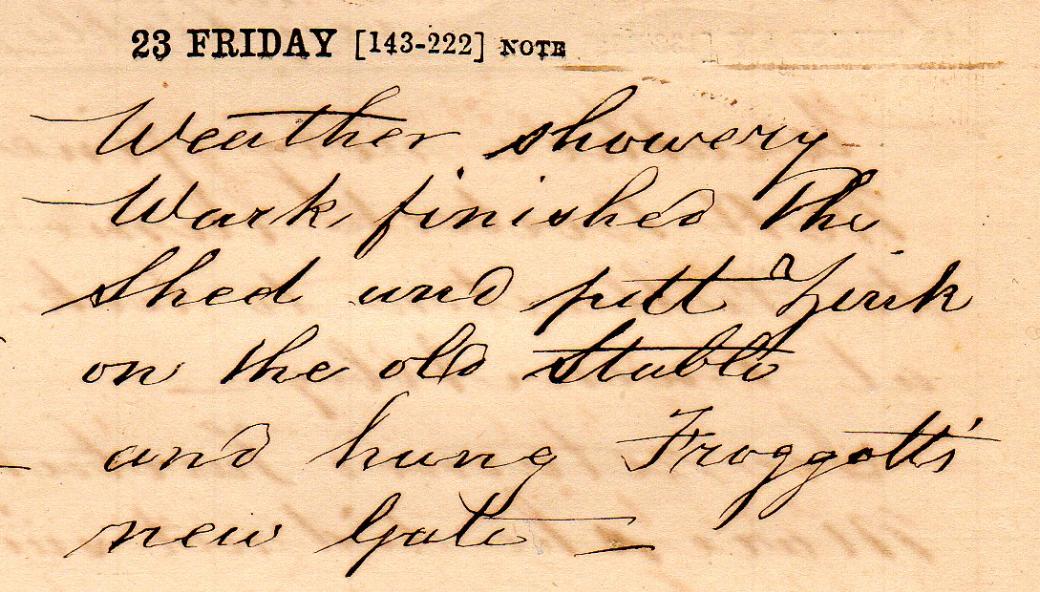 23 FRIDAY [143-222] NOTE
Weather showery
Work finished the
Shed and putt Zink
on the old Stable
and hung Froggotts'
new Gate —